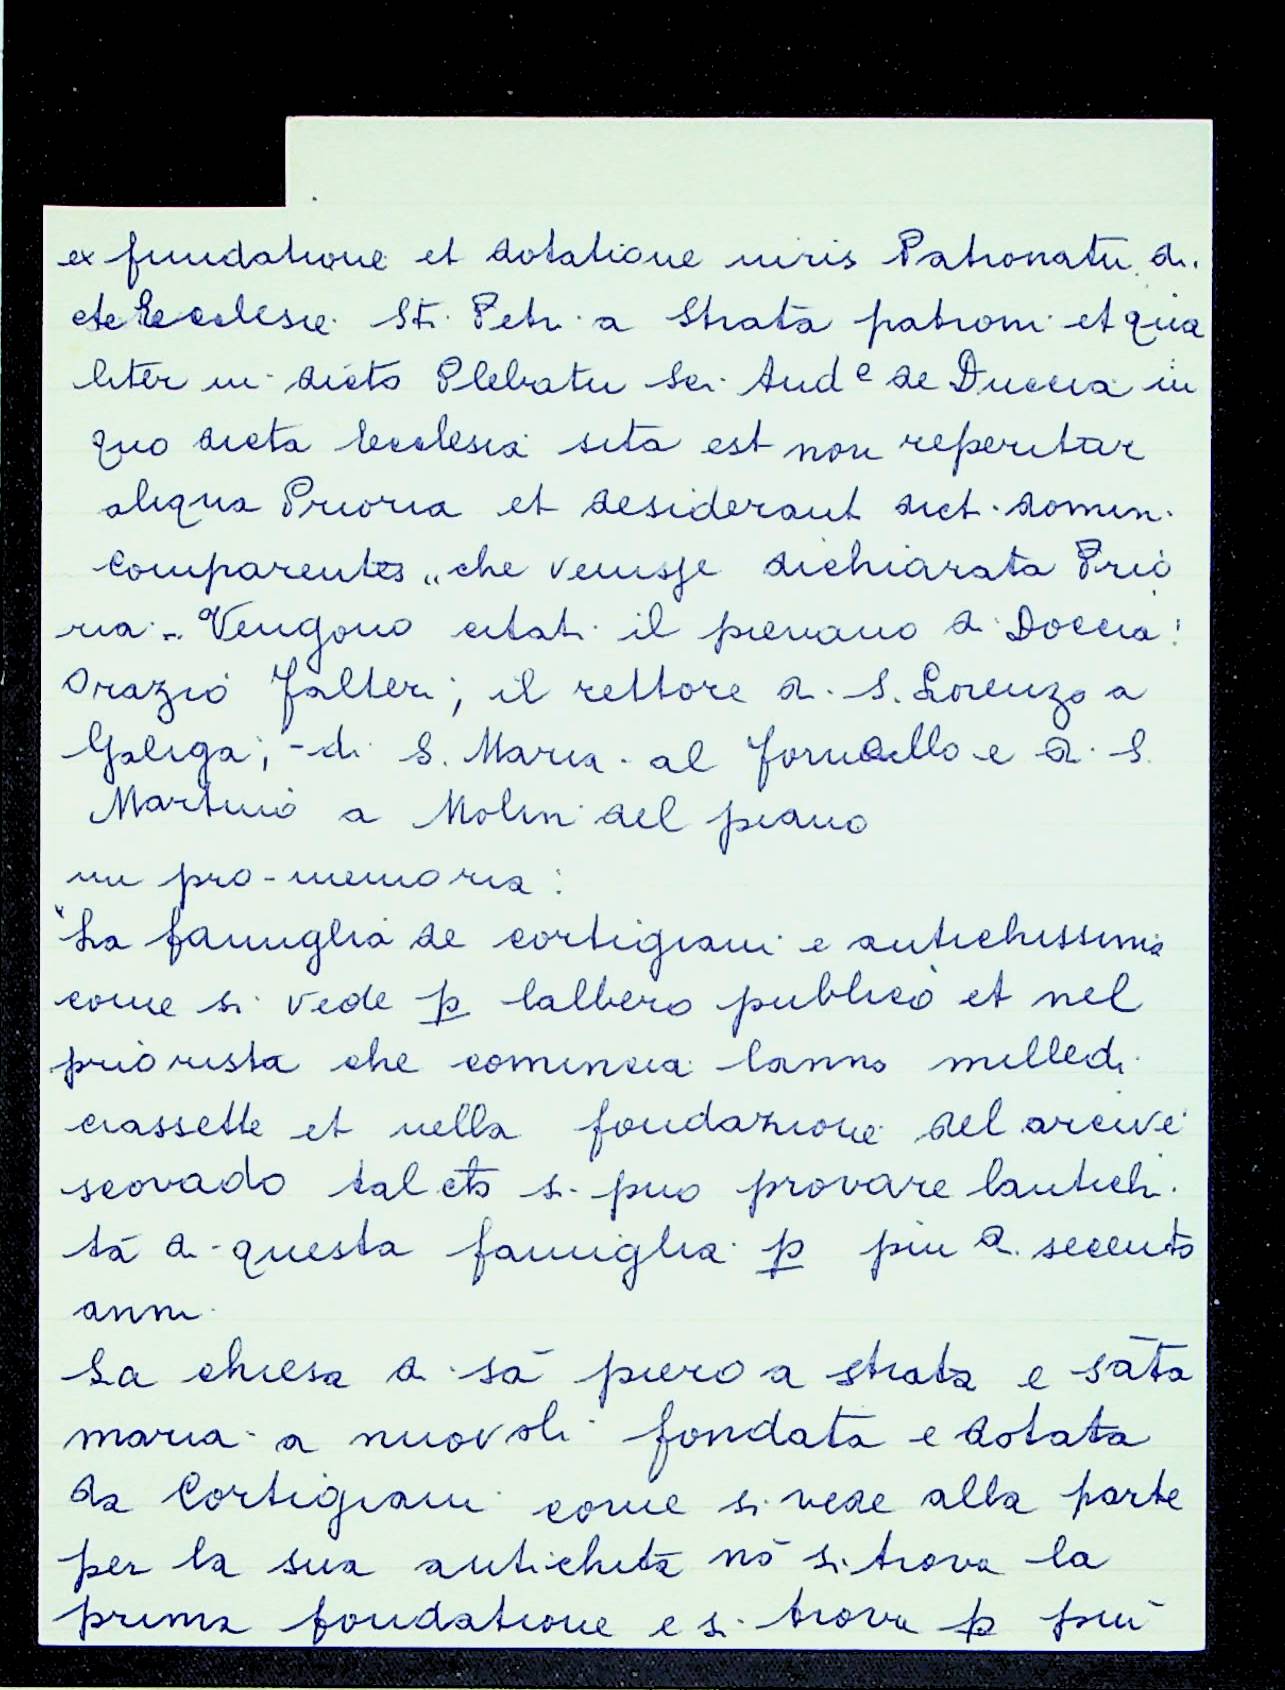 ex fundatione et dotatione iuris Patronatu di
cte Ecclesie Sti. Petri a Strata patroni et qua
liter in dicto Plebatu Sci. Andᵉ de Duccia in
quo dicta Ecclesia sita est non reperitur
aliqua Prioria et desiderant dict. domin.
comparentes „ che venisse dichiarata Prio
ria. - Vengono citati il pievano di Doccia:
Orazio Falteri; il rettore di S. Lorenzo a
Galiga; - di S. Maria al Fornello e di S.
Martino a Molin del piano
un pro-memoria:
"La famiglia de cortigiani e antichissima
come si vede p lalbero publico et nel
priorista che comincia lanno milledi
ciassette et nella fondazione del arcive
scovado tal cto si puo provare lantichi
tà di questa famiglia p piu di secento
anni.
La chiesa di sā piero a strata e sāta
maria a nuovoli fondata e dotata
da Cortigiani come si vede alla parte
per la sua antichità nō si trova la
prima fondatione e si trova p più